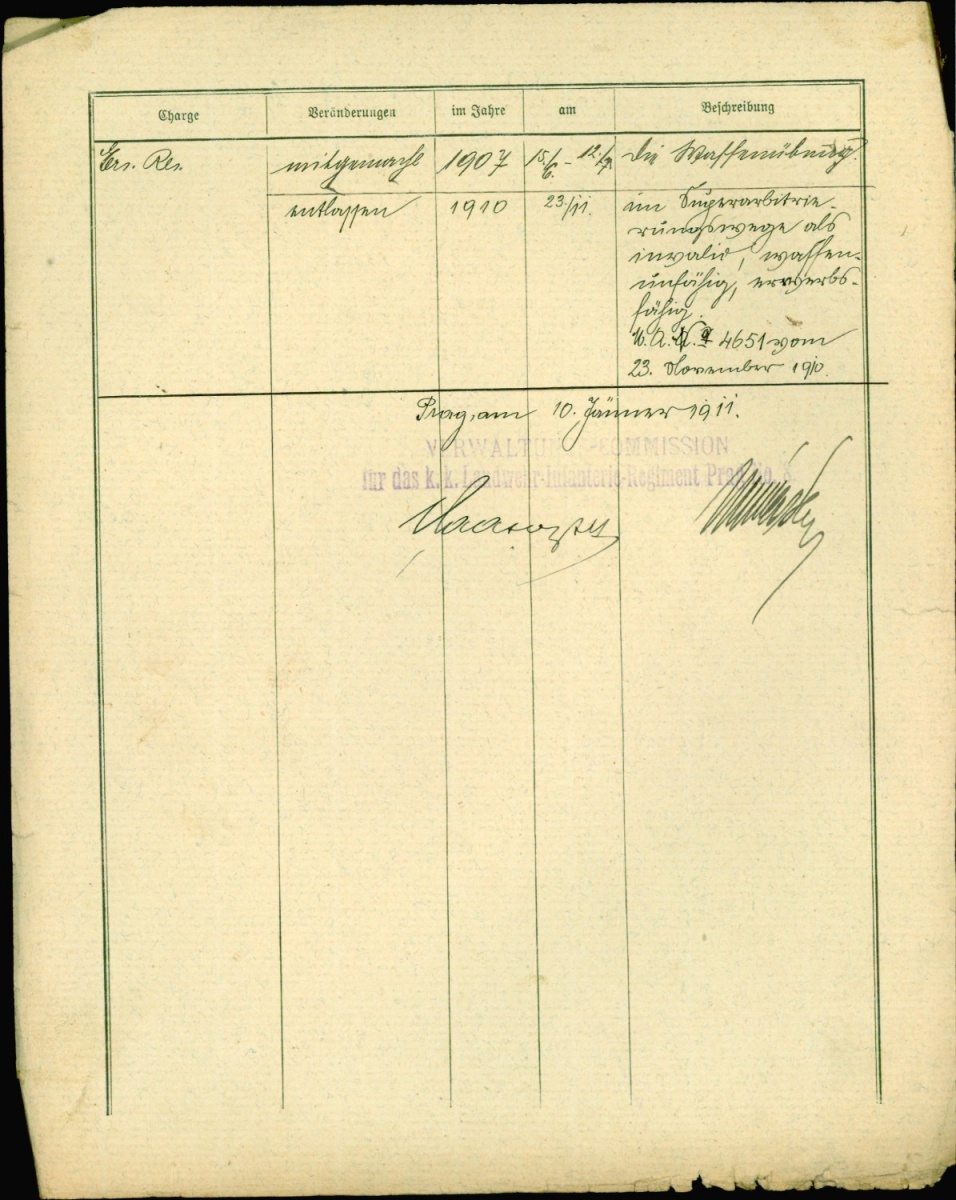 Charge Veränderungen im Jahre am Beschreibung
Ers. Res. mitgemacht 1907 15./6. - 12./7. die Waffenübung.
entlassen 1910 23./11. im Superarbitrie-
rungswege als
invalid, waffen-
unfähig, erwerbs-
fähig.
4651 vom
23. November 1910.
Prag, am 10. Jänner 1911.
VERWALTUNGS-COMMISSION
für das k. k. Landwehr-Infanterie-Regiment Prag No. 8